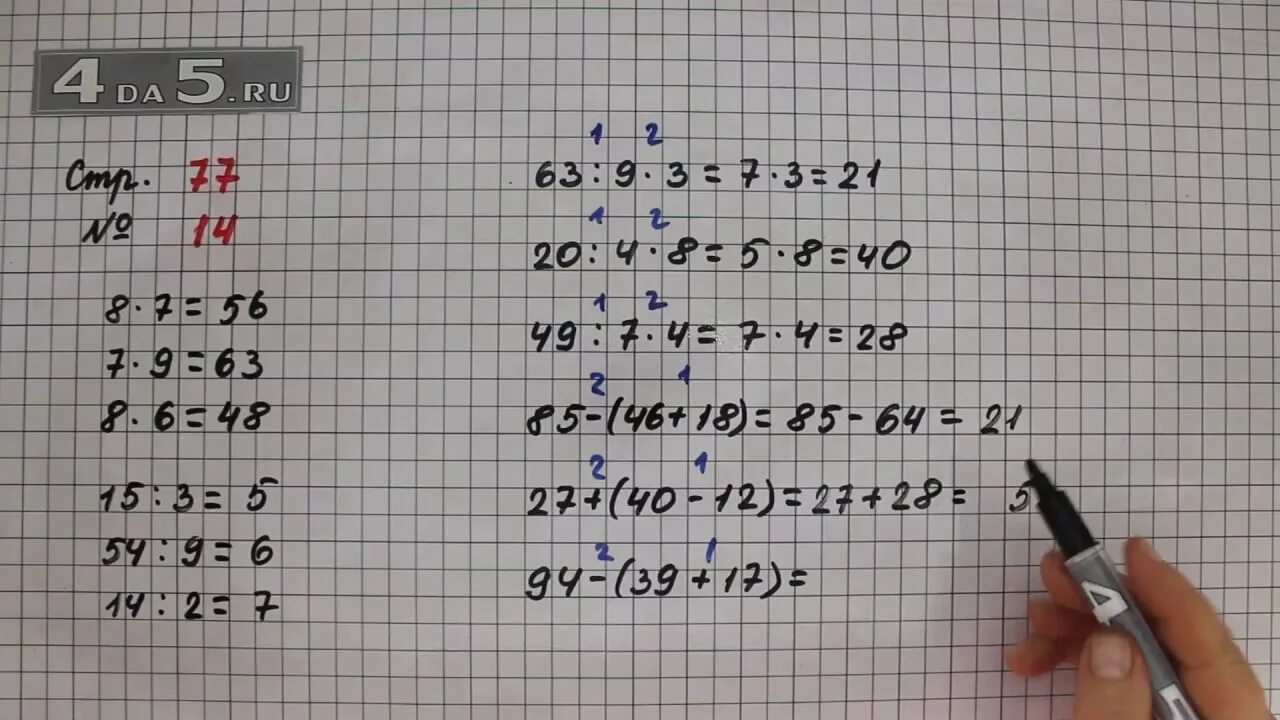 4DA5.RU
Стр. 77
№ 14
8 · 7 = 56
7 · 9 = 63
8 · 6 = 48
15 : 3 = 5
54 : 9 = 6
14 : 2 = 7
1 2
63 : 9 · 3 = 7 · 3 = 21
1 2
20 : 4 · 8 = 5 · 8 = 40
1 2
49 : 7 · 4 = 7 · 4 = 28
2 1
85 - (46 + 18) = 85 - 64 = 21
2 1
27 + (40 - 12) = 27 + 28 = 5
2 1
94 - (39 + 17) =
4